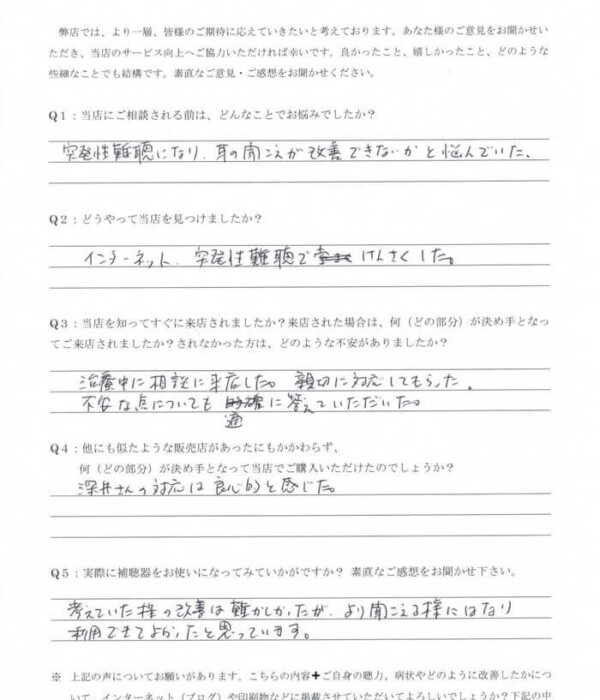 弊店では、より一層、皆様のご期待に応えていきたいと考えております。あなた様のご意見をお聞かせい
ただき、当店のサービス向上へご協力いただければ幸いです。良かったこと、嬉しかったこと、どのような
些細なことでも結構です。素直なご意見・ご感想をお聞かせください。
Q1：当店にご相談される前は、どんなことでお悩みでしたか？
突発性難聴になり、耳の聞こえが改善できないかと悩んでいた。
Q2：どうやって当店を見つけましたか？
インターネット、突発性難聴で けんさくした。
Q3：当店を知ってすぐに来店されましたか？来店された場合は、何（どの部分）が決め手となっ
てご来店されましたか？されなかった方は、どのような不安がありましたか？
治療中に相談に来店した。親切に対応してもらった。
不安な点についても 適確に答えていただいた。
Q4：他にも似たような販売店があったにもかかわらず、
何（どの部分）が決め手となって当店でご購入いただけたのでしょうか？
深井さんの対応は良心的と感じた。
Q5：実際に補聴器をお使いになってみていかがですか？ 素直なご感想をお聞かせ下さい。
考えていた程の改善は難かしかったが、より聞こえる様にはなり
利用できてよかったと思っています。
※ 上記の声についてお願いがあります。こちらの内容＋ご自身の聴力、病状やどのように改善したかにつ
いて、インターネット（ブログ）や印刷物などに掲載させていただいてよろしいでしょうか？下記の中